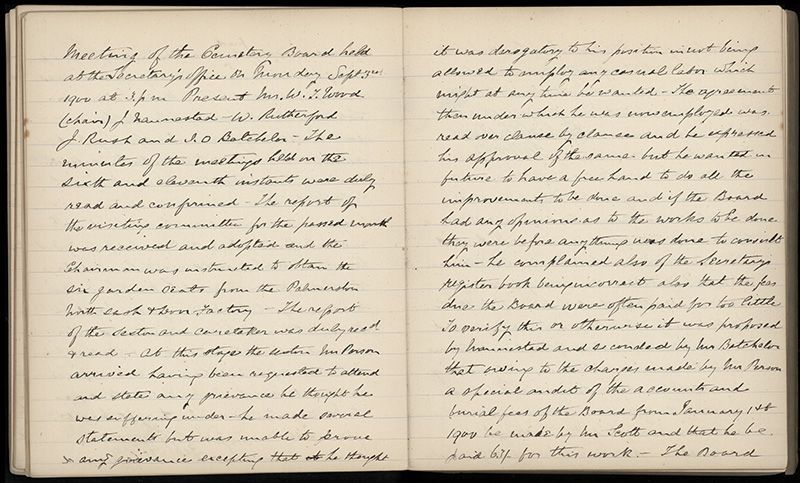 Meeting of the Cemetery Board held
at the Secretary's Office on Thursday Sept
1900 at 3 pm Present Mr. W. T. Wood
(chair) J Nannestad - W. Rutherford
J Rush and J. O Batchelor - The
minutes of the meetings held on the
sixth and eleventh instants were duly
read and confirmed - The report of
the visiting committee for the passed month
was received and adopted and the
Chairman was instructed to obtain the
six garden from the Palmerston
North Sash & Door Factory - The report
of the Sexton and Caretaker was duly read
& read - At this stage the sexton Mr Person
arrived having been requested to attend
and state any grievance he thought he
was suffering under - he made several
statements but was unable to prove
any grievances excepting that he thought
it was derogatory to his position in not being
allowed to employ any casual labor which
might at any time be wanted - The agreement
then under which he was now employed was
read over clause by clause and he expressed
his approval of the same but he wanted in
future to have a free hand to do all the
improvements to be done and if the Board
had any opinions as to the works to be done
they were before anything was done to consult
him - he complained also of the Secretarys
register book being incorrect also that the fees
due the Board were often paid for too little
To verify this or otherwise it was proposed
by Nannestad and seconded by Mr Batchelor
that owing to the charges made by Mr Person
a special audit of the accounts and
burial fees of the Board from January 1st
1900 be made by Mr Scott and that he be
paid for this work - The Board